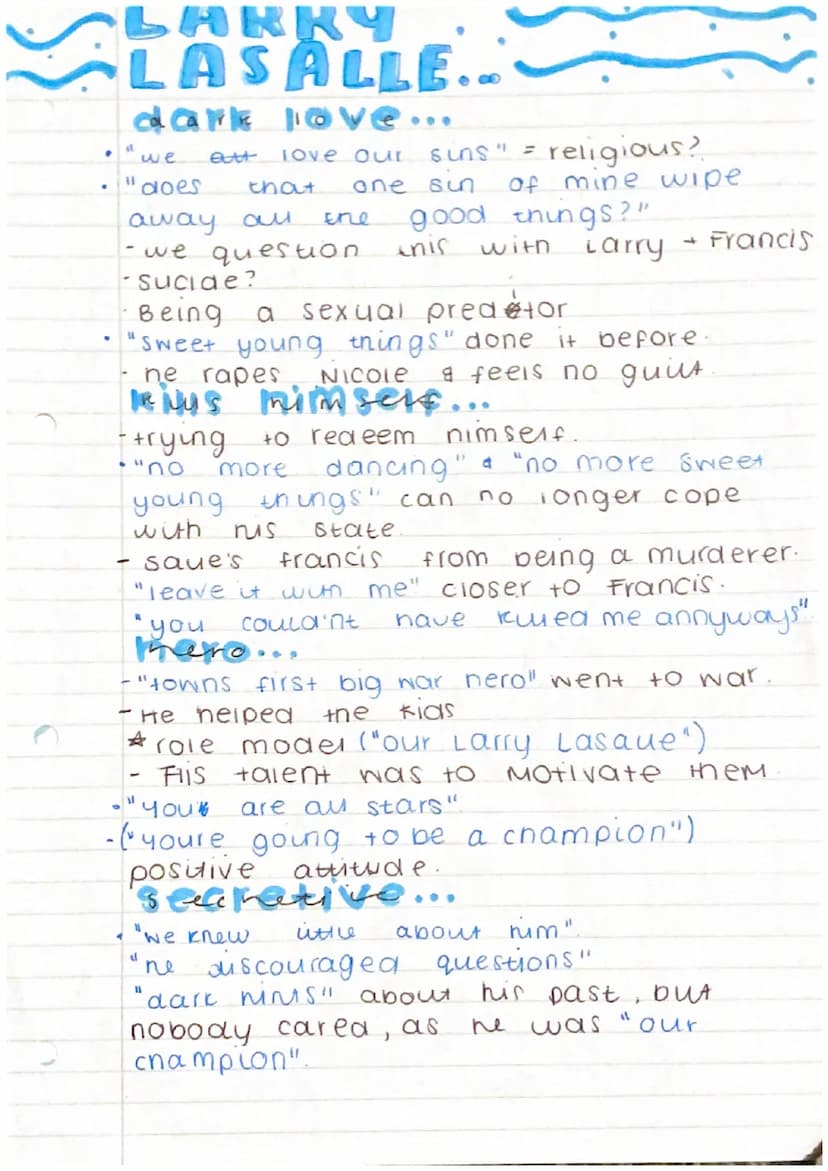 LARRY
LASALLE...
dark love...
• "we all love our sins" = religious?
• "does that one sin of mine wipe
away all the good things?"
- we question this with Larry + Francis
- sucide?
· Being a sexual preditor
• "sweet young things" done it before.
- he rapes Nicole & feels no guilt.
Kills himself...
- trying to redeem himself.
• "no more dancing" & "no more sweet
young things" can no longer cope
with his state.
- save's francis from being a murderer.
"leave it with me" closer to Francis.
"you could'nt have killed me annyways"
hero...
- "towns first big war hero" went to war.
- He helped the kids
* role model ("our Larry Lasalle")
- His talent was to motivate them
• "you are all stars"
- ("youre going to be a champion")
positive attitude.
secretive...
• "we knew little about him"
"he discouraged questions"
"dark hints" about his past, but
nobody cared, as he was "our
champion".